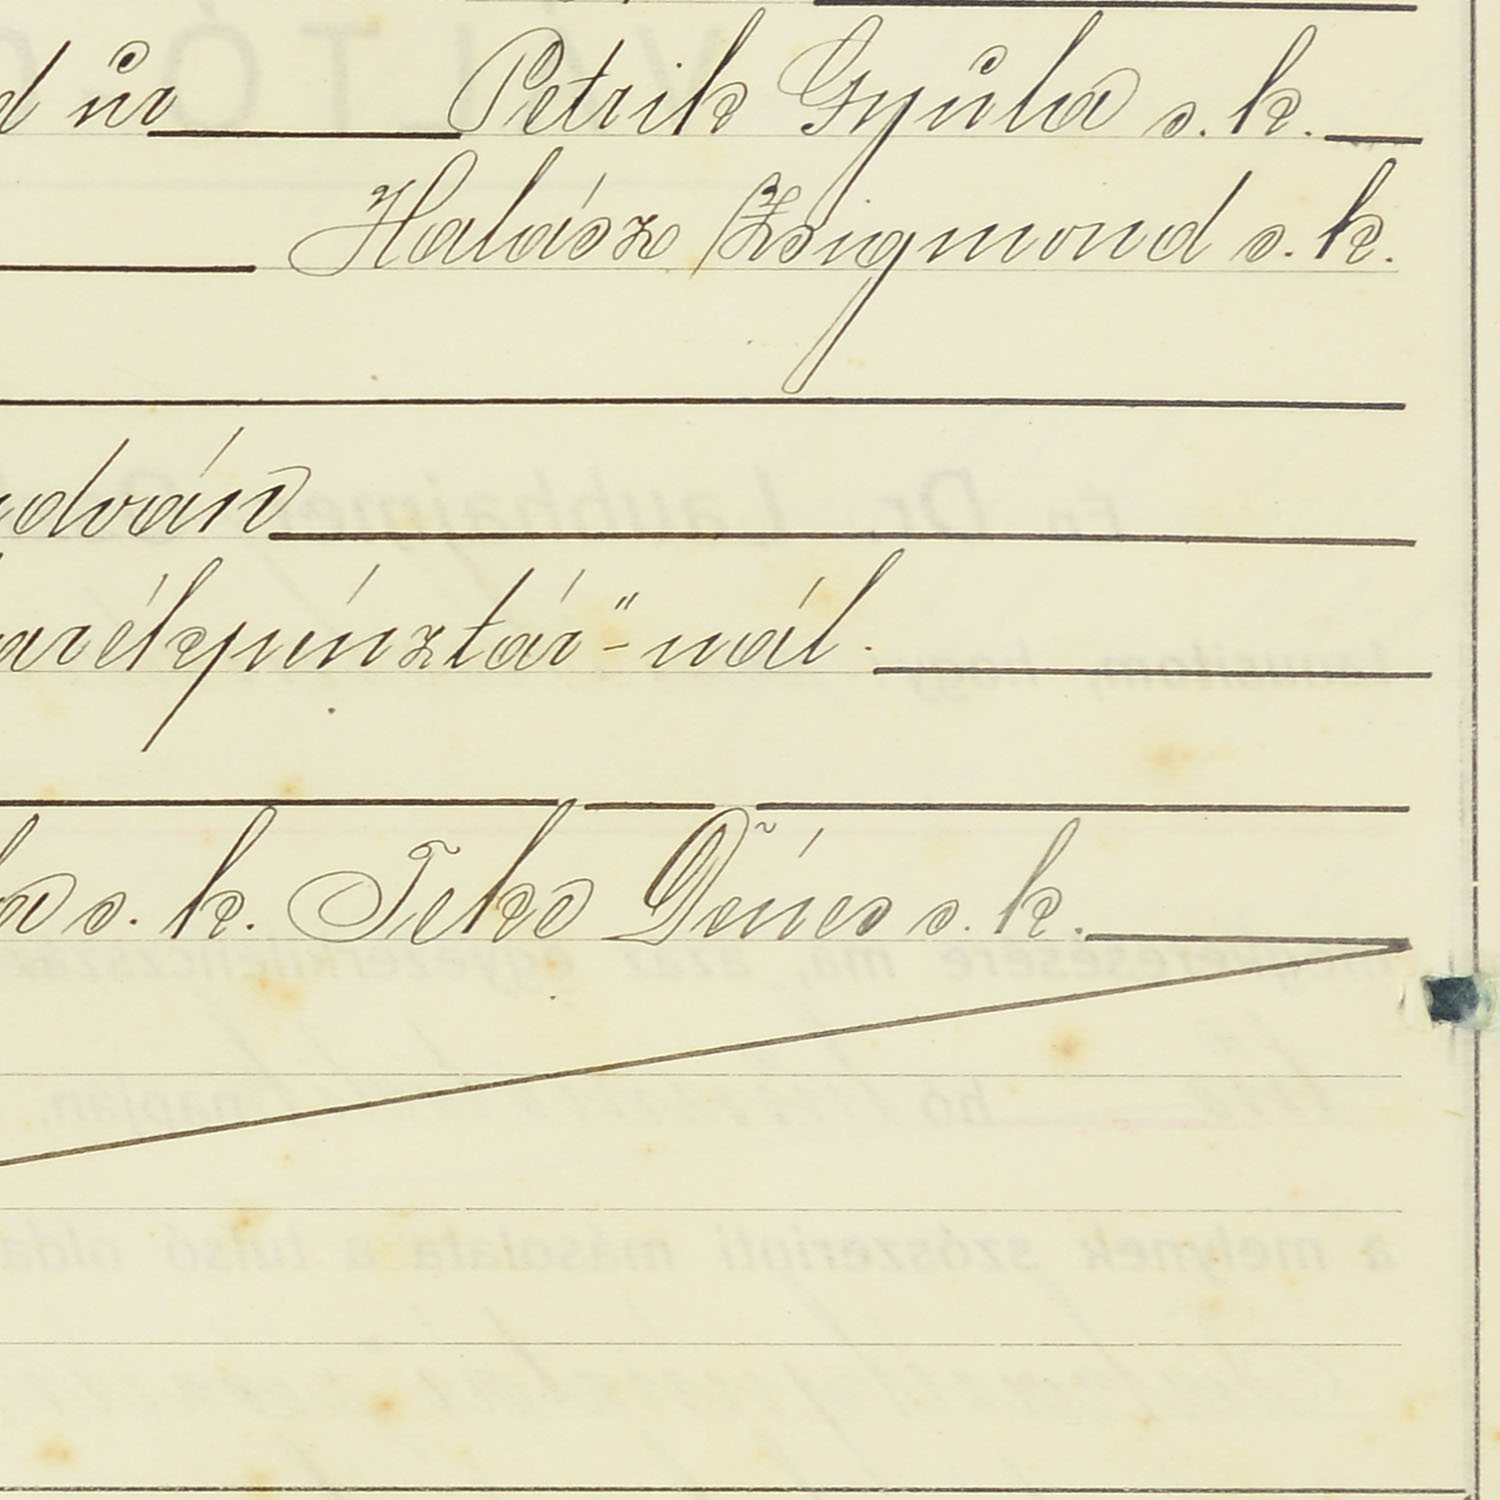 d úr Petrik Gyula s. k.
Halász Zsigmond s. k.
udván
arékpénztár"-nál.
a s. k. Teke Dénes s. k.